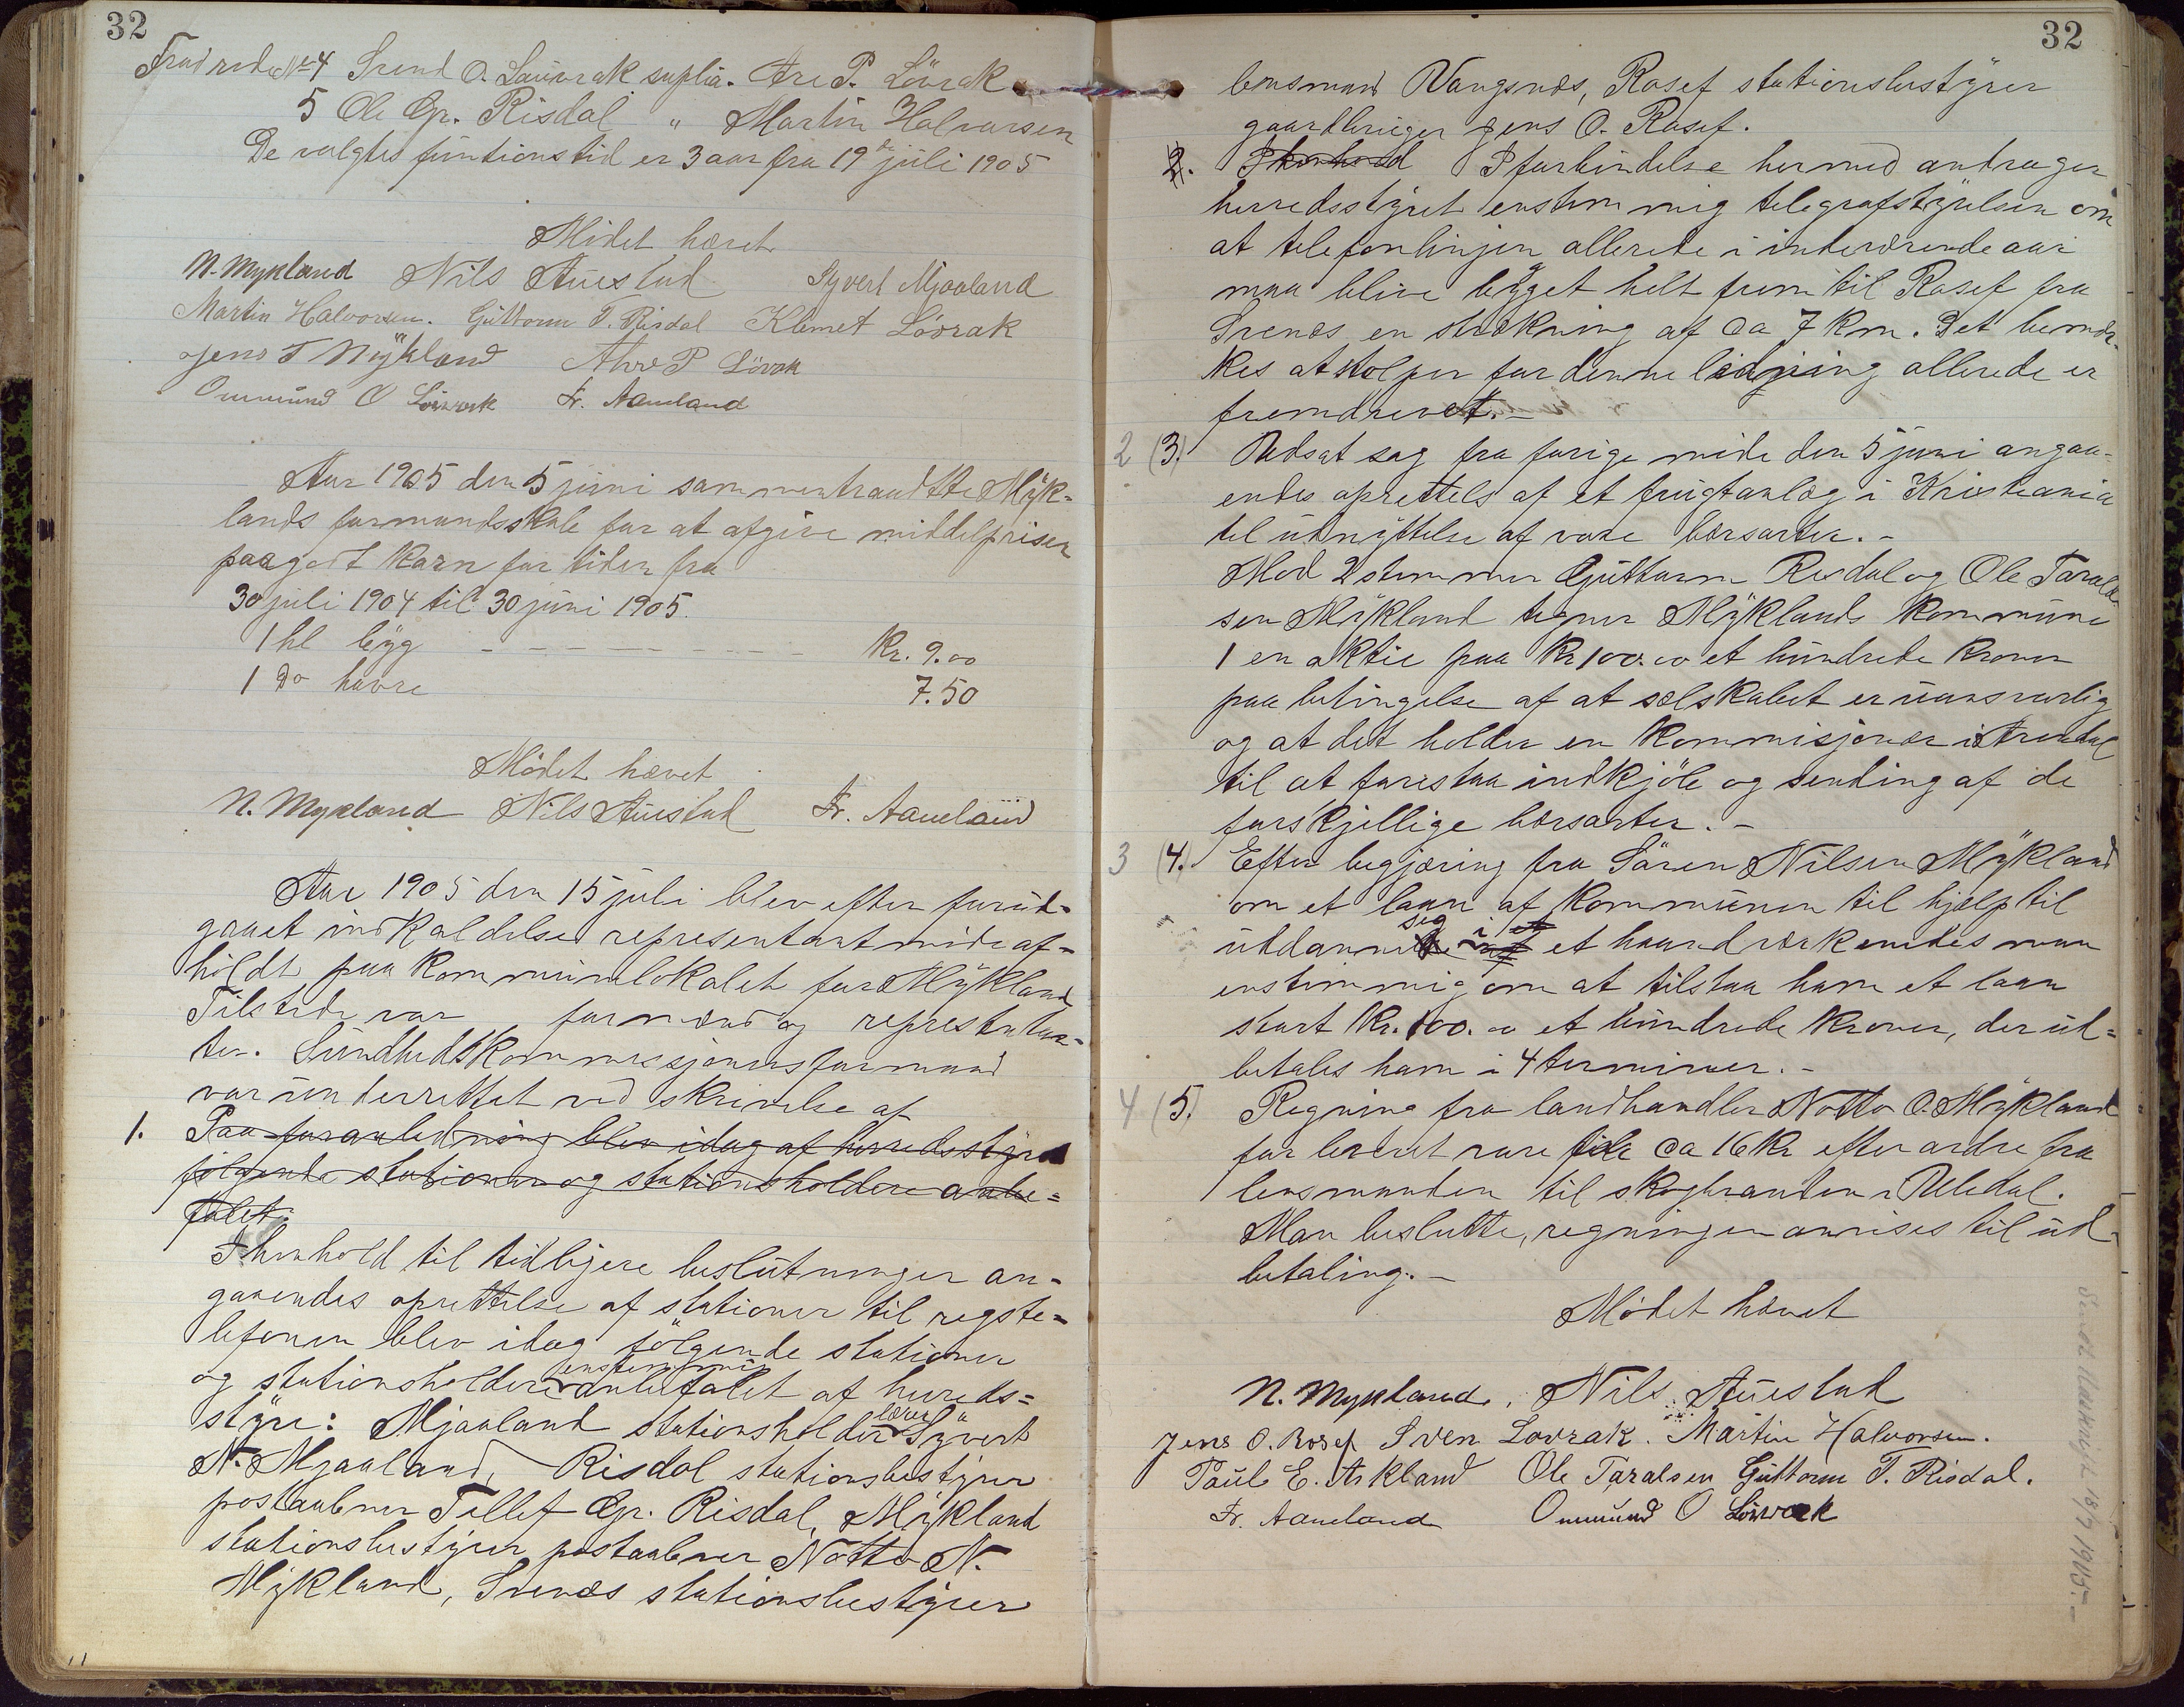 32
Trudrode No 4 Svend O. Lauvrak suplia. Are P. Lövrak
5 Ole Gr. Risdal " Martin Halvorsen
De valgtes funtionstid er 3 aar fra 19de juli 1905
Mödet hævet
N. Mykland Nils Auestad Syvert Mjaaland
Martin Halvorsen. Guttorm T. Risdal Klemet Lövrak
Jens T Mykland Ahre P Lövrak
Ommund O Lövrak Fr. Aaneland
Aar 1905 den 5 juni sammentraadtte Myk=
lands formandsskab for at afgive middelpriser
paa godt korn for tiden fra
30 juli 1904 til 30 juni 1905.
1 hl byg - - - - - - - - - - Kr. 9.00
1 Do havre 7.50
Mödet hævet
N. Mykland Nils Auestad Fr. Aaneland
Aar 1905 den 15 juli blev efter forud=
gaaet indkaldelse representantmöde af=
holdt paa kommunelokalet for Mykland
Tilstede var formænd og represtntan=
ter. Sundhedskommissjonens formand
var underrettet ved skrivelse af
1. Paa foranledning blev idag af herredsstyret
følgende stationer og stationsholdere anbe=
falet:
I henhold til tidligere beslutninger an=
gaaendes oprettelse af stationer til rigste=
lefonen blev idag følgende stationer
og stationsholdere enstemmig anbefalet af hereds=
styre: Mjaaland stationsholder lærer Syvert
N. Mjaaland, Risdal stationsbestyrer
postaabner Tellef Gr. Risdal, Mykland
stationsbestyrer postaabner Notto N.
Mykland, Svenæs stationsbestyrer
32
lensmand Vangsnæs, Rosef stationsbestyrer
gaardbruger Jens O. Rosef.
2. I henhold I forbindelse hermed andrager
herredsstyret enstemmig telegrafstyrelsen om
at telefonlinjen allerede i indeværende aar
maa blive bygget helt frem til Rosef fra
Svenæs en strækning af ca 7 km. Det bemær=
kes at stolper for denne ledning allerede er
fremdrevet. -
2 (3.) Udsat sag fra forige möde den 5 juni angaa=
endes oprettels af et frugtanlæg i Kristiania
til udnyttelse af vore bærsarter. -
Mod 2 stemmer Guttorm Risdal og Ole Tarald
sen Mykland tegner Myklands kommune
1 en aktie paa Kr 100.00 et hundrede kroner
paa betingelse af at sælskabet er uansvarlig
og at det holder en kommisjonær i Arendal
til at forestaa indkjöb og sending af de
forskjellige bærsarter. -
3 (4.) Efter begjæring fra Sören Nilsen Mykland
om et laan af kommunen til hjælp til
uddanne sig i et haandværk enedes man
enstemmig om at tilstaa ham et laan
stort Kr. 100.00 et hundrede kroner, der ud=
betales ham i 4 terminer. -
4 (5.) Regning fra landhandler Notto O. Mykland
for leveret vare til ca 16 Kr efter ordre fra
lensmanden til skogbranden i Uledal.
Man beslutte, regningen anvises til ud=
betaling. -
Mödet hævet
N. Mykland, Nils Auestad
Jens O. Rosef Sven Lovrak. Martin Halvorsen.
Paul E. Askland Ole Taralsen Guttorm T. Risdal.
Fr. Aaneland Ommund O Lövrak
18/7 1905. -